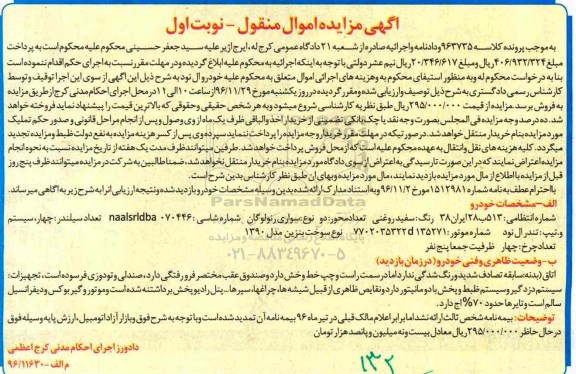 آگهی مزایده اموال منقول - نوبت اول
به موجب پرونده کلاسه ۹۶۳۷۳۵ ودادنامه واجرائیه صادره از شعبه ۲۱ دادگاه عمومی کرج له ، ایرج اژیر علیه سید جعفر حسینی محکوم علیه محکوم است به پرداخت
مبلغ ۴۰۶/۹۳۲/۳۲۴ ریال ومبلغ ۲۰/۳۴۶/۶۱۷ ریال نیم عشر دولتی با توجه به اینکه اجرائیه به محکوم علیه ابلاغ گردیده و در مهلت مقرر نسبت به اجرای حکم اقدام ننموده است
بنا به درخواست محکوم له وبه منظور استیفای محکوم به وهزینه های اجرائی اموال متعلق به محکوم علیه خودرو ال نود به شرح ذیل این آگهی از سوی این اجرا توقیف و توسط
کارشناس رسمی دادگستری به شرح ذیل توصیف وارزیابی شده ومقرر گردیده در روز یکشنبه مورخ ۹۶/۱۱/۲۹ از ساعت ۱۰ الی ۱۱ در محل اجرای احکام مدنی کرج از طریق مزایده
به فروش برسد. مزایده از قیمت ۲۹۵/۰۰۰/۰۰۰ ریال طبق نظریه کارشناسی شروع میشود وبه هر شخص حقیقی وحقوقی که بالاترین قیمت را پیشنهاد نماید فروخته خواهد
شد. ده درصد وجه مزایده فی المجلس بصورت وجه نقد یا چک بانکی تضمینی از خریدار اخذ والباقی ظرف یک ماه از وی وصول و پس از انجام مراحل قانونی و صدور حکم تملیک
مورد مزایده بنام خریدار منتقل خواهد شد. در صورتیکه در مهلت مقرر خریدار وجه مزایده را پرداخت ننماید سپرده وی پس از کسر هزینه مزایده به نفع دولت ضبط ومزایده تجدید
میگردد. کلیه هزینه های نقل وانتقال به عهده محکوم علیه است که از محل فروش پرداخت خواهد شد. طرفین میتوانند ظرف مدت یک هفته از تاریخ مزایده نسبت به نحوه انجام
مزایده اعتراض نمایند که در این صورت تا رسیدگی به اعتراض از سوی دادگاه مورد مزایده بنام خریدار منتقل نخواهد شد، ضمنا طالبین به شرکت در مزایده میتوانند ظرف پنج روز
قبل از مزایده با اطلاع از مال مورد مزایده بازدید نمایند، مال مورد مزایده وبهای ان طبق نظر کارشناس بدین شرح است.
با احترام عطف به نامه شماره ۱۵۱۲۹۸۱ مورخ ۹۶/۱۱/۲ وبه استناد مدارک ارائه شده بدین وسیله مشخصات خودرو بازدید شده ونتیجه ارزیابی انرا به شرح زیر به آگاهی میرساند.
الف- مشخصات خودرو
شماره انتظامی : ۵۱۳ب۲۸ ایران۳۸ رنگ: سفید روغنی تعداد محور: دو نوع: سواری رنو لوگان شماره شاسی : ۰۷۰۴۴۶ naalsrldba تعداد سیلندر: چهار، سیستم
و تیپ : تندر ال نود شماره موتور : ۱۳۵۲۷۱ d ۷۷۰۲۰۳۵۳۲۲ نوع سوخت بنزین مدل ۱۳۹۰
تعداد چرخ: چهار ظرفیت جمعا پنج نفر
ب- وضعیت ظاهری وفنی خودرو (در زمان بازدید)
اتاق (بدنه سابقه تصادف شدید ورنگ شدگی ندارد اما در سمت راست وچپ خط وخش دارد وصندوق عقب مختصر فرورفتگی دارد، صندلی وتودوزی فرسوده است، تجهیزات:
سیستم دزدگیر وسیستم ظبط وپخش با دو مانیتور دارد ونقایص ظاهری از قبیل شیشه ها، چراغها، سپرها.. پنل رادیو پخش برداشته شده است وموتور و گیربوکس ودیفرانسیل
سالم است وتایرها حدود ۷۰% آج دارد.
توضیحات : بیمه نامه شخص ثالث ارائه نشد اما بر ابر اعلام مالک قبلی در تیر ماه ۹۶ بیمه نامه آن تمدید شده است وبا توجه به شرح فوق وبازار آزاد اتومبیل، ارزش پایه وسیله فوق
در حال حاظر ۲۹۵/۰۰۰/۰۰۰ ریال معادل بیست ونه میلیون وپانصد هزار تومان
دادورز اجرای احکام مدنی کرج اعظمی
م الف - ۹۶/۱۱۶۳۰
۱۳۲
ParsNamadData
۰۲۱-۸۸۳۴۹۶۷۰-۵